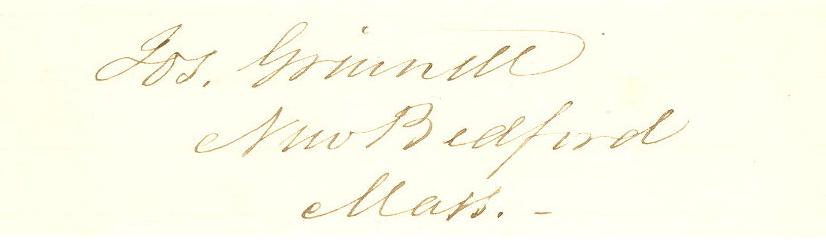 Jos. Grinnell
New Bedford
Mass. -